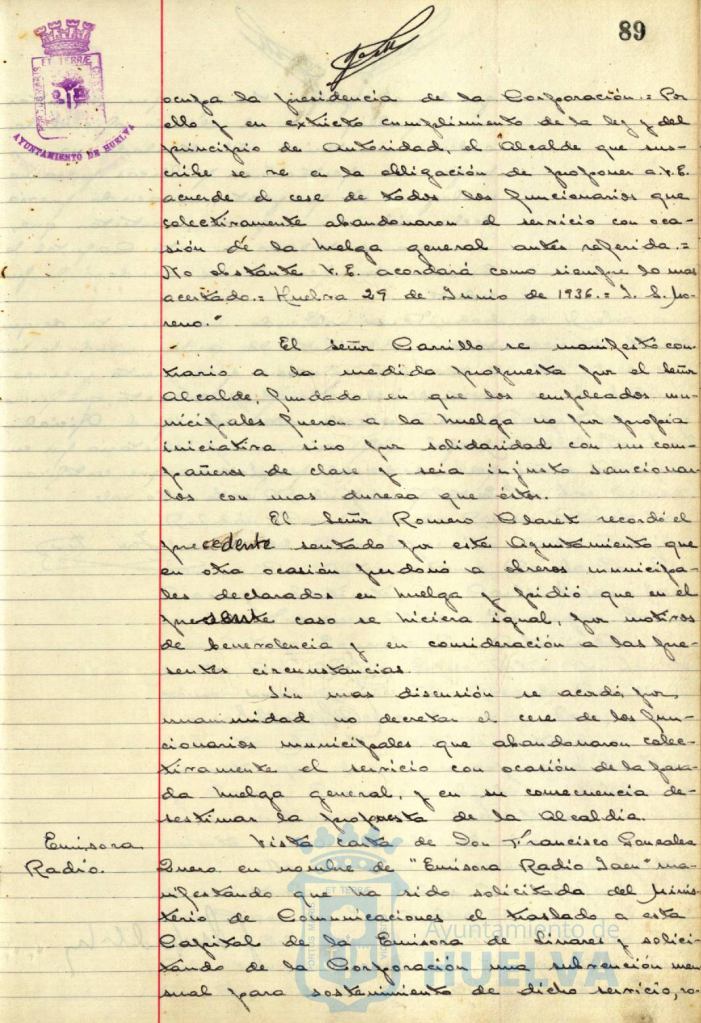 89
PORTUS MARIS ET TERRÆ CUSTODIA
AYUNTAMIENTO DE HUELVA
ocupa la presidencia de la Corporación.= Por
ello y en extricto cumplimiento de la ley y del
principio de Autoridad, el Alcalde que sus-
cribe se ve en la obligación de proponer a V.E.
acuerde el cese de todos los funcionarios que
colectivamente abandonaron el servicio con oca-
sión de la huelga general antes referida.=
No obstante V.E. acordará como siempre lo mas
acertado.= Huelva 29 de Junio de 1936.= J. S. Mo-
reno."
El Señor Carrillo se manifestó con-
trario a la medida propuesta por el Señor
Alcalde, fundado en que los empleados mu-
nicipales fueron a la huelga no por propia
iniciativa sino por solidaridad con sus com-
pañeros de clase y seia injusto sancionar-
los con mas dureza que éstos.
El Señor Romero Claret recordó el
precedente sentado por este Ayuntamiento que
en otra ocasión perdonó a obreros municipa-
les declarados en huelga y pidió que en el
presente caso se hiciera igual, por motivos
de benevolencia y en consideración a las pre-
sentes circunstancias.
Sin mas discusión se acordó, por
unanimidad no decretar el cese de los fun-
cionarios municipales que abandonaron colec-
tivamente el servicio con ocasión de la pasa-
da huelga general, y en su consecuencia de-
sestimar la propuesta de la Alcaldía.
Emisora
Radio.
Vista carta de Don Francisco Gonzalez
Duero en nombre de "Emisora Radio Jaen" ma-
nifestando que ha sido solicitada del Minis-
terio de Comunicaciones el traslado a esta
Capital de la Emisora de Linares y solici-
tando de la Corporación una subvención men-
sual para sostenimiento de dicho servicio, se
Ayuntamiento de
HUELVA